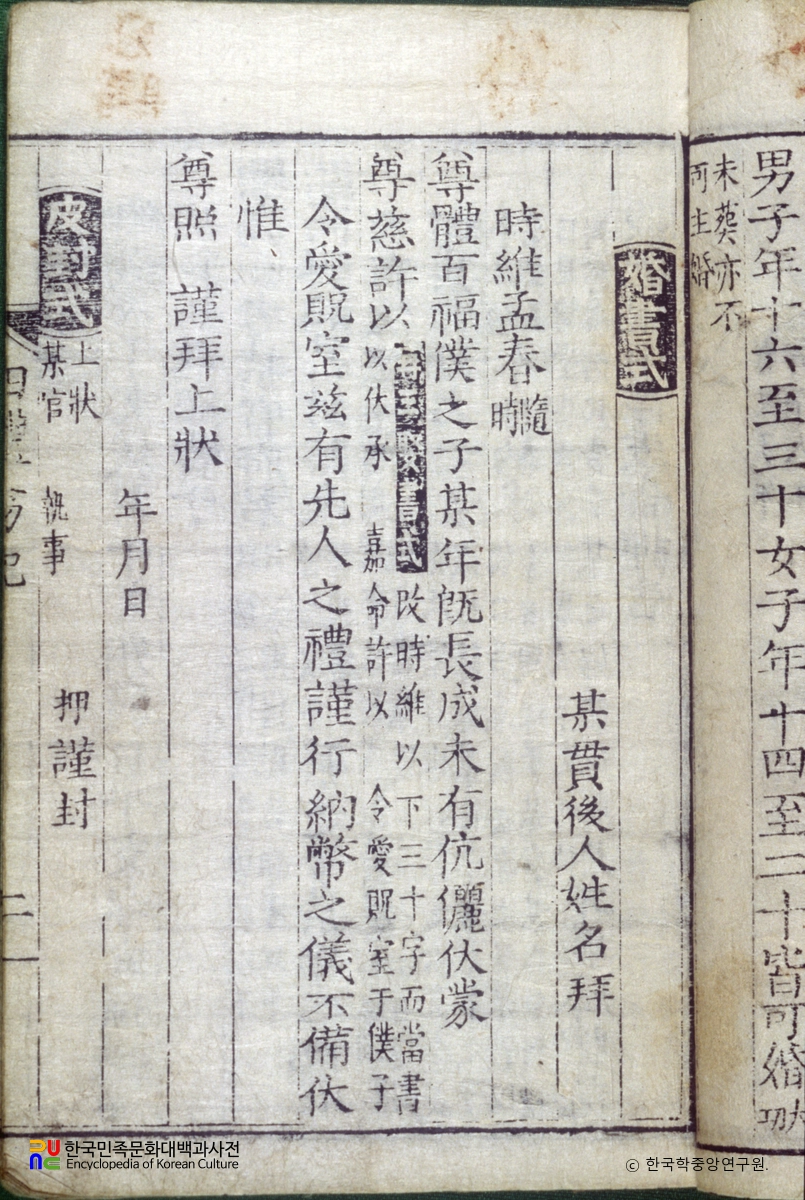 男子年十六至三十女子年十四至二十皆可婚
未葬亦不
主婚
婚書式
某貫後人姓名拜
時維孟春隨時
尊體百福僕之子某年旣長成未有伉儷伏蒙
尊慈許以
書式改時維以下三十字而當書
以伏承 嘉命許以 令愛貺室于僕子
令愛貺室玆有先人之禮謹行納幣之儀不備伏
惟
尊照 謹拜上狀
年月日
皮封式
上狀
某官 執事
押謹封
二
한국민족문화대백과사전
Encyclopedia of Korean Culture
ⓒ 한국학중앙연구원.